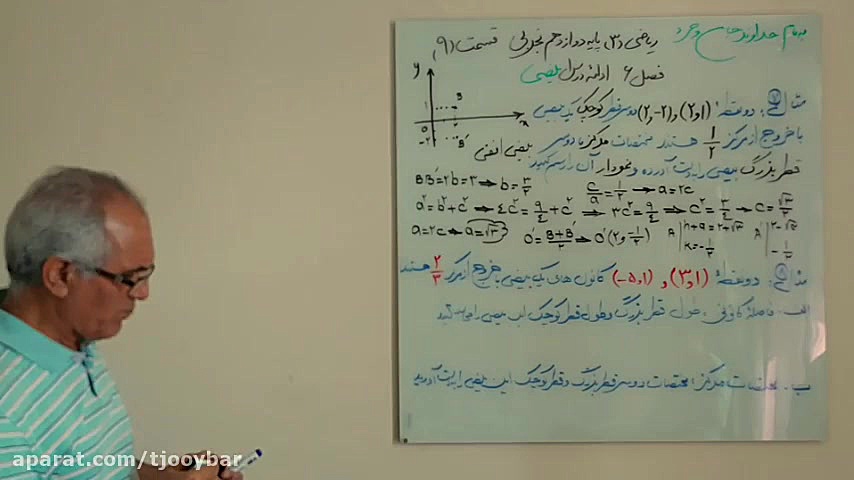 بنام خداوند جان و خرد
ریاضی (۳) پایه دوازدهم تجربی قسمت (۹)
فصل ۶ ادامه درس بیضی
مثال ۷: دو نقطه (۱و۲) و (۲-و۲) دو سر قطر کوچک یک بیضی
با خروج از مرکز ۱/۲ هستند مختصات مرکز و دو سر
قطر بزرگ بیضی را بدست آورده و نمودار آن را رسم کنید
بیضی افقی
y
x
۱
۰
-۲
B
B'
BB'=۲b=۳ → b=۳/۲
c/a=۱/۲ → a=۲c
a²=b²+c² → ۴c²=۹/۴+c² → ۳c²=۹/۴ → c²=۳/۴ → c=√۳/۲
a=۲c → a=√۳
o'=B+B'/۲ → o'(۲و-۱/۲)
A |h+a=۲+√۳
k=-۱/۲
A' |۲-√۳
-۱/۲
مثال ۸: دو نقطه (۱و۳) و (۱و۵-) کانون های یک بیضی با خروج از مرکز ۲/۳ هستند
الف- فاصله کانونی، طول قطر بزرگ و طول قطر کوچک این بیضی را محاسبه کنید
ب- مختصات مرکز، مختصات دو سر قطر بزرگ و قطر کوچک این بیضی را بدست آورید
aparat.com/tjooybar